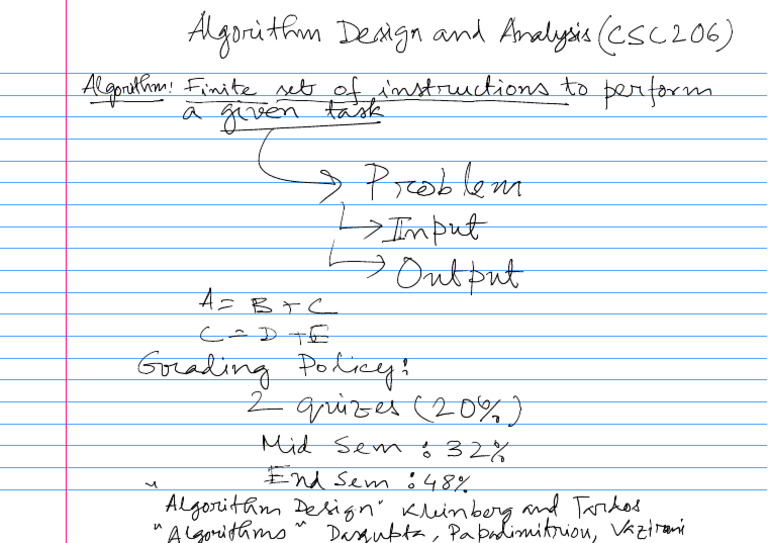 Algorithm Design and Analysis (CSC206)
Algorithm: Finite set of instructions to perform
a given task
Problem
Input
Output
A = B + C
C = D + E
Grading Policy:
2 quizes (20%)
Mid Sem : 32%
End Sem : 48%
"Algorithm Design" Kleinberg and Tardos
"Algorithms" Dasgupta, Papadimitriou, Vazirani